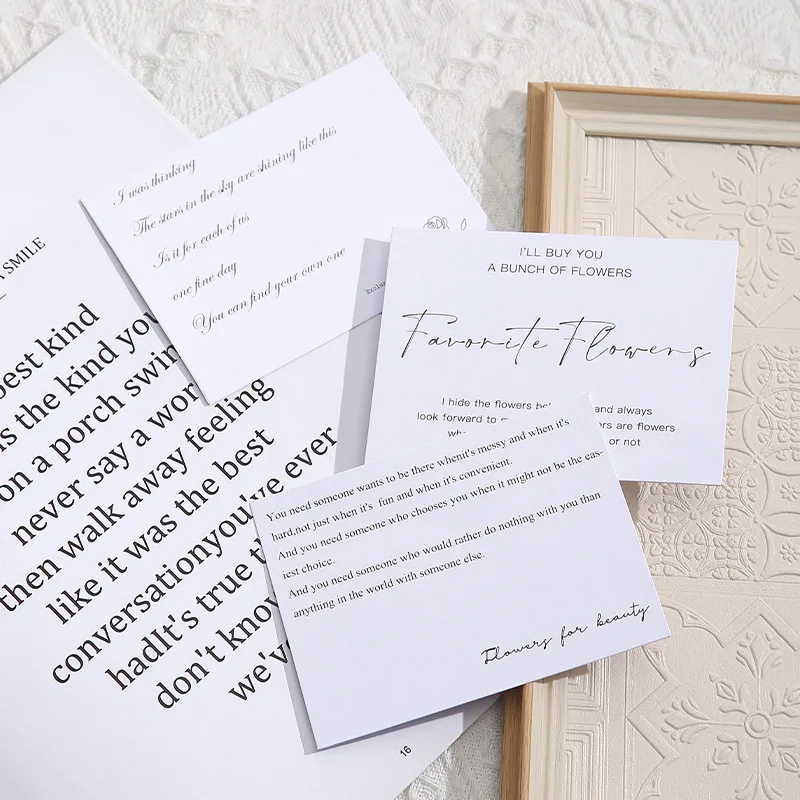 A SMILE
best kind
is the kind you
on a porch swin
never say a wor
then walk away feeling
like it was the best
conversationyou've ever
hadIt's true th
don't know
we've
16
I was thinking
The stars in the sky are shining like this
Is it for each of us
one fine day
You can find your own one
I'LL BUY YOU
A BUNCH OF FLOWERS
Favorite Flowers
I hide the flowers and always
look forward to are flowers
or not
You need someone wants to be there whenit's messy and when it's
hard,not just when it's fun and when it's convenient.
And you need someone who chooses you when it might not be the eas-
iest choice.
And you need someone who would rather do nothing with you than
anything in the world with someone else.
Flowers for beauty